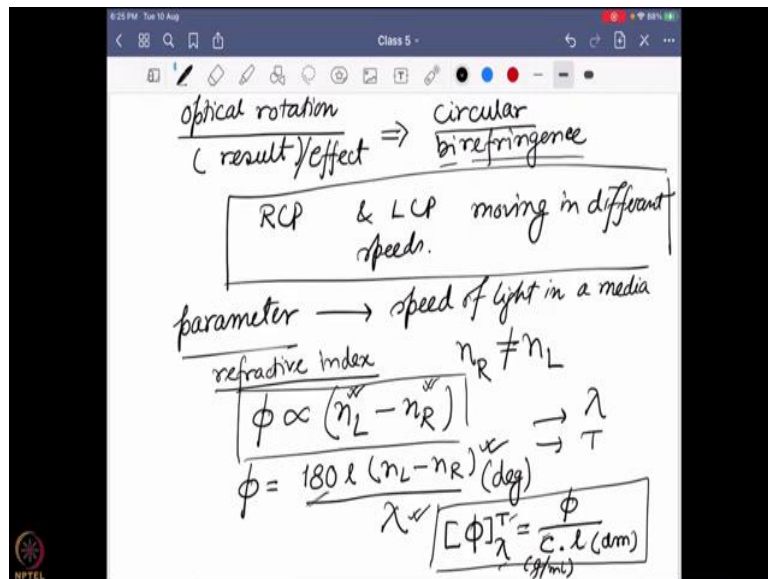 6:25 PM Tue 10 Aug
88%
Class 5
optical rotation
(result)/effect ⇒ circular birefringence
RCP & LCP moving in different speeds.
parameter → speed of light in a media
refractive index n_R ≠ n_L
ϕ ∝ (n_L - n_R) → λ
→ T
ϕ = 180 l (n_L - n_R) (deg)
λ
[ϕ]^T_λ = ϕ
c. l (dm)
(g/ml)
NPTEL